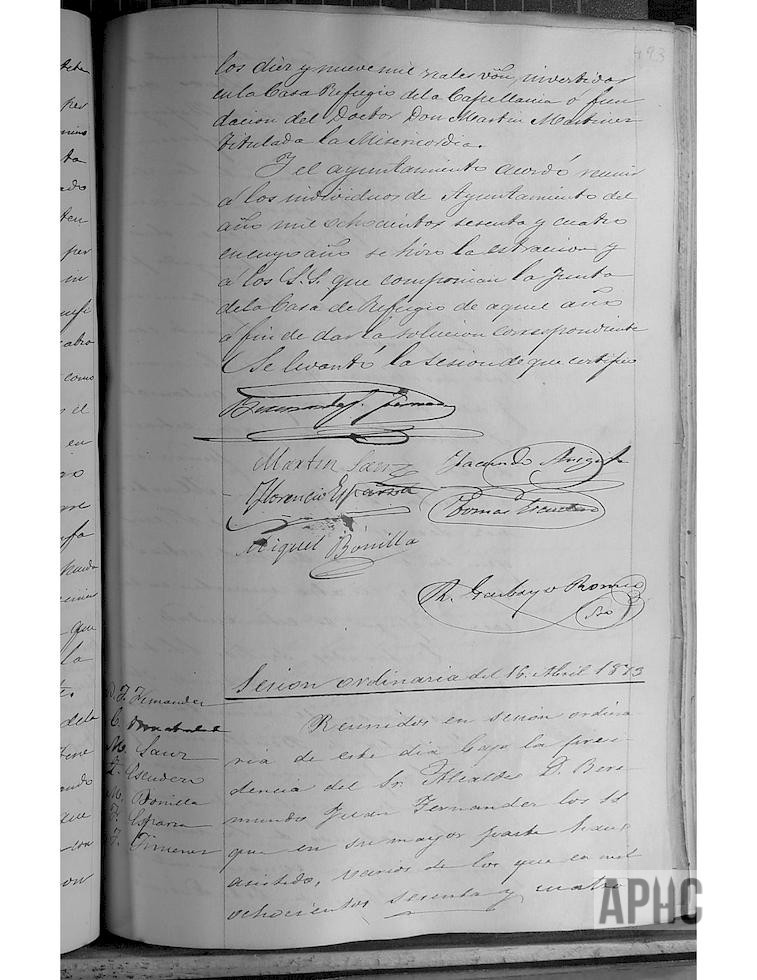 493
los diez y nueve mil reales vón, invertidos
en la Casa Refugio de la Capellania o fun
dacion del Doctor Don Martin Martinez
titulada la Misericordia.
Y el ayuntamiento acordó reunir
á los individuos de Ayuntamiento del
año mil ochocientos sesenta y cuatro
en cuyo año se hizo la estracion y
á los S.S. que componian la Junta
de la Casa de Refugio de aquel año
á fin de dar la solucion correspondiente
Se levantó la sesion de que certifico
Martin Sanz
Facundo
Florencio Esparza
Tomas Escudero
Miguel Bonilla
R. Garbayo Romeo
Srio
Sesion ordinaria del 16. Abril 1873
Fernandez
M. Sanz
T. Escudero
M. Bonilla
F. Esparza
F. Gimenez
Reunidos en sesion ordina
ria de este dia bajo la presi
dencia del Sr. Alcalde D. Bere
mundo Juan Fernandez los SS
que en su mayor parte han
asistido, varios de los que en mil
ochocientos sesenta y cuatro
ta
per
ado
ten
per
in
como
el
en
que
la
de la
que
con
APHC